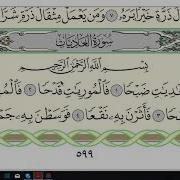 ذَرَّةٍ خَيْرًا يَرَهُ ٧ وَمَن يَعْمَلْ مِثْقَالَ ذَرَّةٍ شَرًّا
سُورَةُ الْعَادِيَاتِ
بِسْمِ اللَّهِ الرَّحْمَٰنِ الرَّحِيمِ
ـدِيَٰتِ ضَبْحًا ١ فَالْمُورِيَٰتِ قَدْحًا ٢ فَالْمُـ
ـحًا ٣ فَأَثَرْنَ بِهِ نَقْعًا ٤ فَوَسَطْنَ بِهِ جَمْـ
٥٩٩